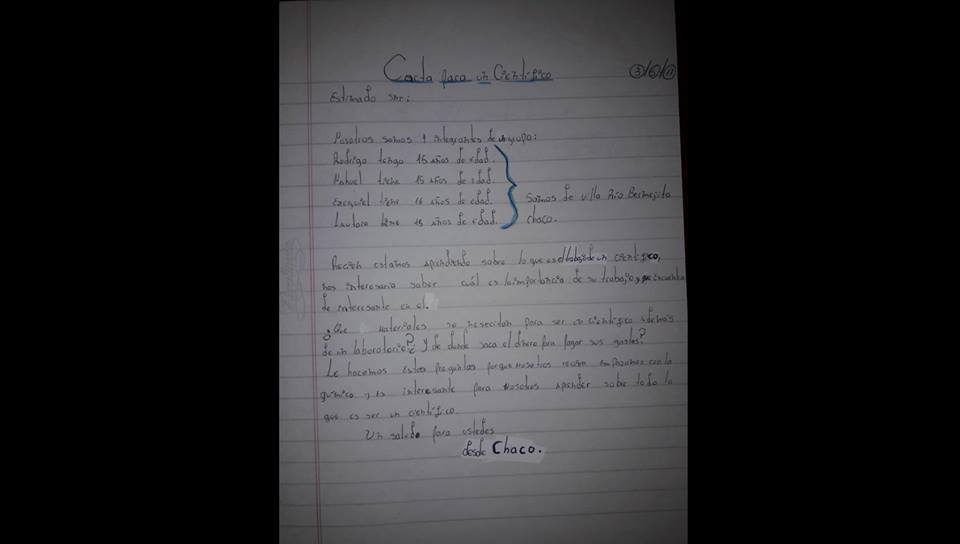 Carta para un Científico
Estimado Snr:
Nosotros somos 4 integrantes de un grupo:
Rodrigo tengo 15 años de edad.
Manuel tiene 15 años de edad.
Ezequiel tiene 16 años de edad.
Lautaro tiene 15 años de edad.
Somos de villa Rio Bermejito
chaco.
Recien estamos aprendiendo sobre lo que es el trabajo de un científico,
nos interesaria saber cuál es la importancia de su trabajo y que encuentra
de interesante en el.
¿Que materiales se nesecitan para ser un cientifico ademas
de un laboratorio? ¿y de donde saca el dinero para pagar sus gastos?
Le hacemos estas preguntas porque nosotros recien empezamos con la
quimica y es interesante para nosotros aprender sobre todo lo
que es ser un científico.
Un saludo para ustedes
desde Chaco.